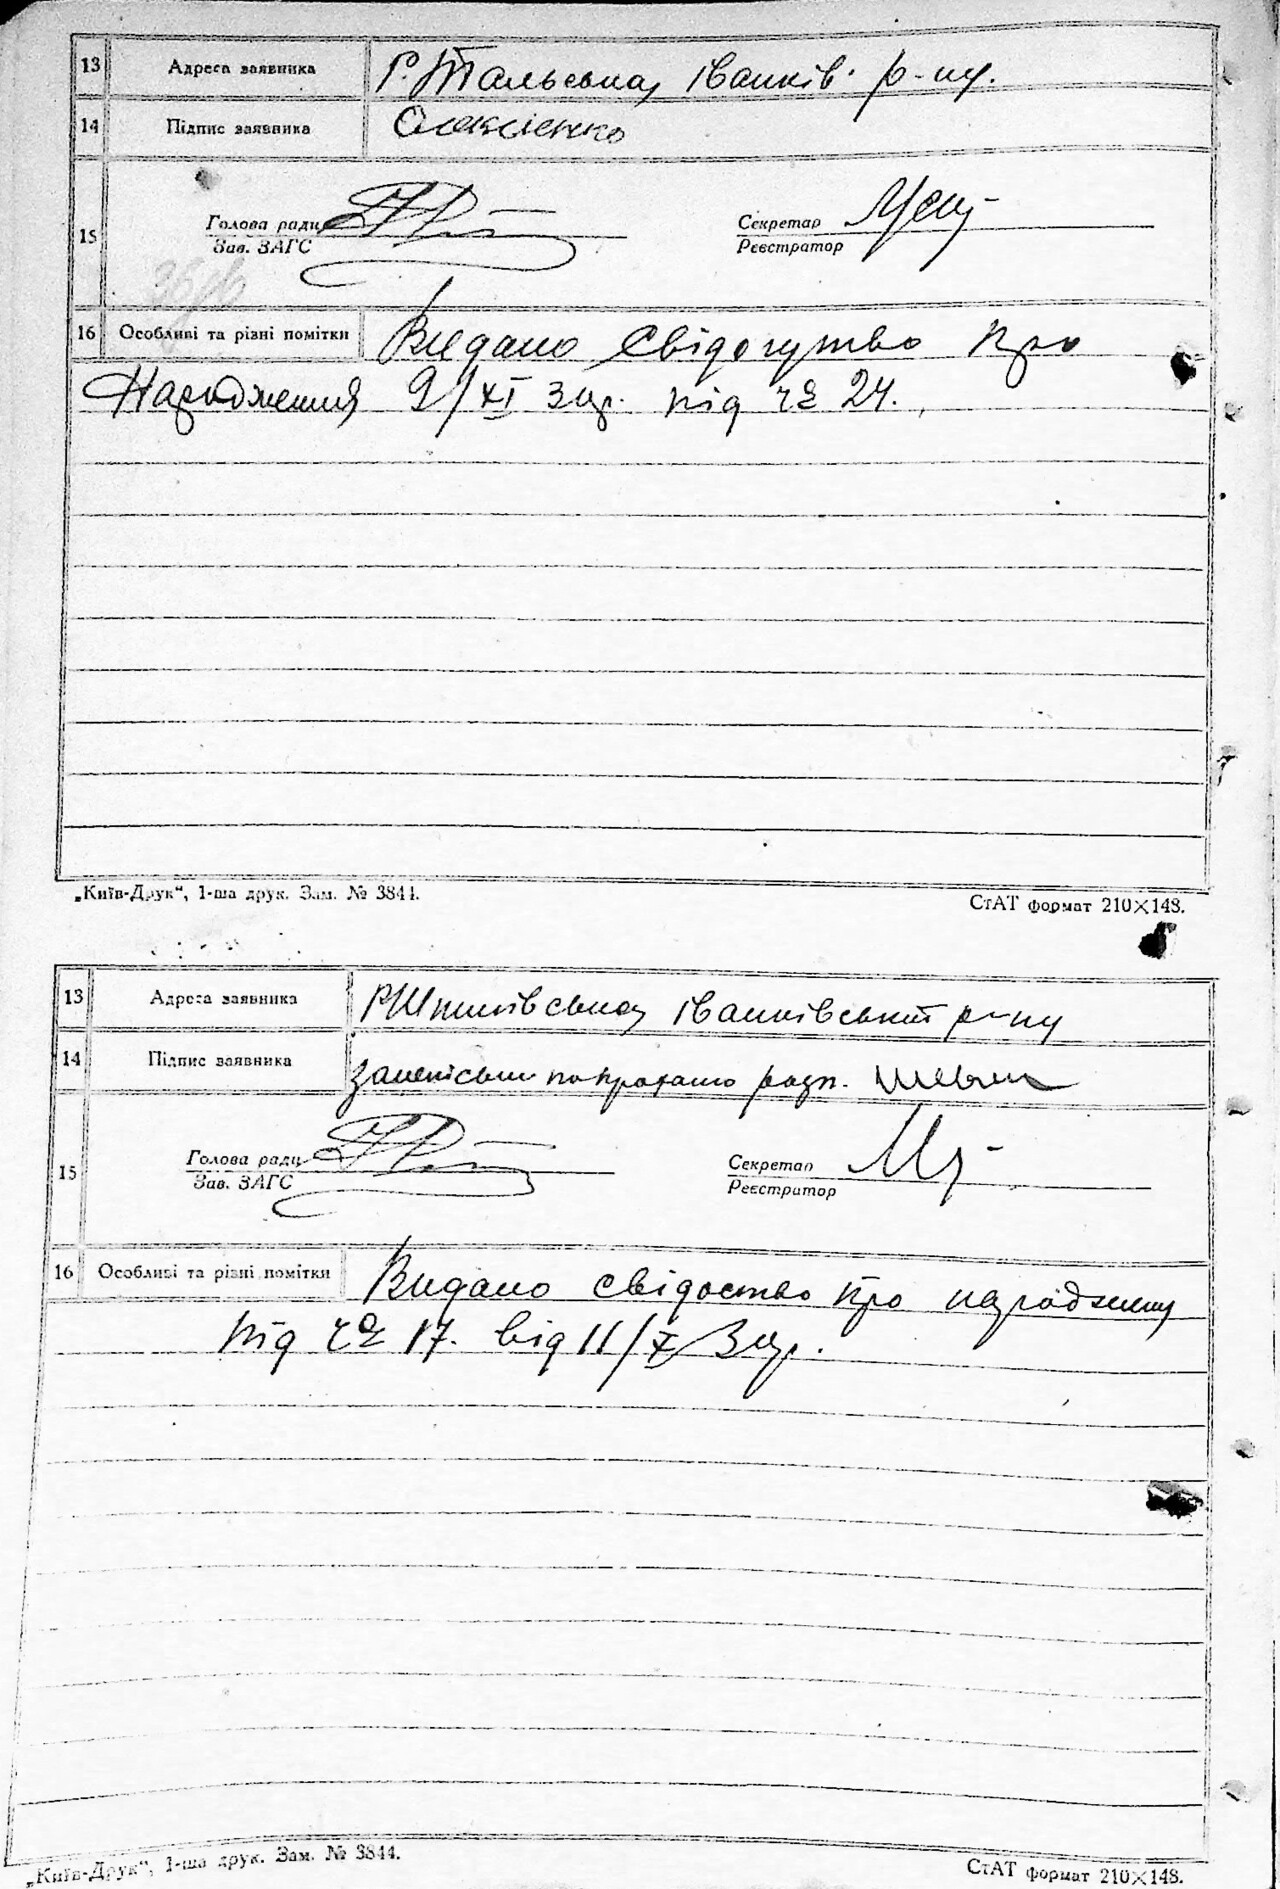 13 Адреса заявника Р. Тальська, Іванків. р-ну.
14 Підпис заявника Олексієнко
15 Голова ради Секретар
Зав. ЗАГС Реєстратор
16 Особливі та різні помітки Видано свідоцтво про
Народження 9/XI 3 пр. під № 24.
„Київ-Друк“, 1-ша друк. Зам. № 3844.
СтАТ формат 210×148.
13 Адреса заявника Іванківський р-ну
14 Підпис заявника
15 Голова ради Секретар
Зав. ЗАГС Реєстратор
16 Особливі та різні помітки Видано свідоство про
під № 17. від 11/X
„Київ-Друк“, 1-ша друк. Зам. № 3844.
СтАТ формат 210×148.